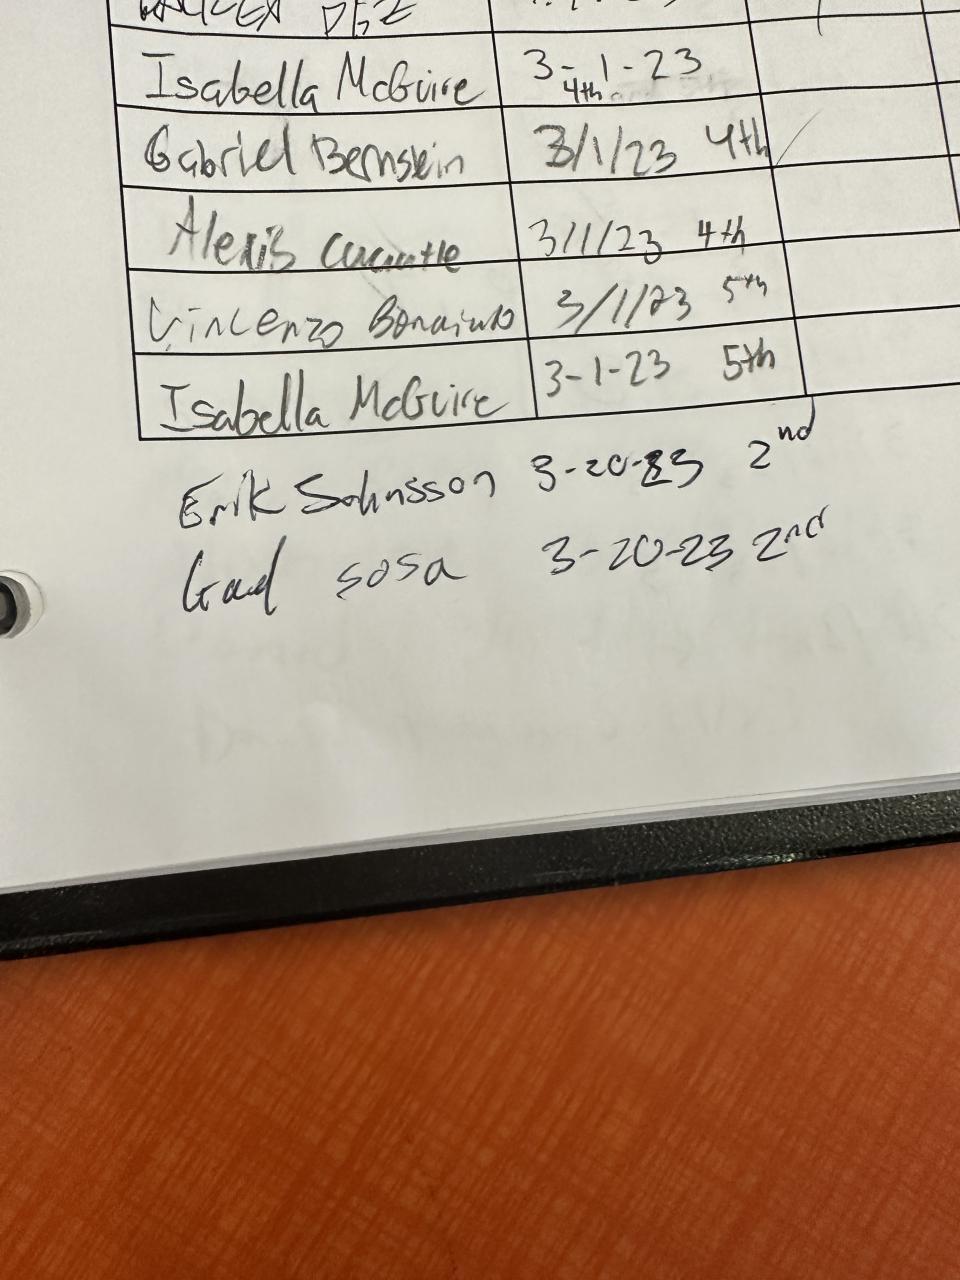 Isabella McGuire 3-1-23 4th
Gabriel Bernstein 3/1/23 4th
Alexis 3/1/23 4th
Vincenzo 3/1/23 5th
Isabella McGuire 3-1-23 5th
Erik Sohnsson 3-20-23 2nd
Gad sosa 3-20-23 2nd